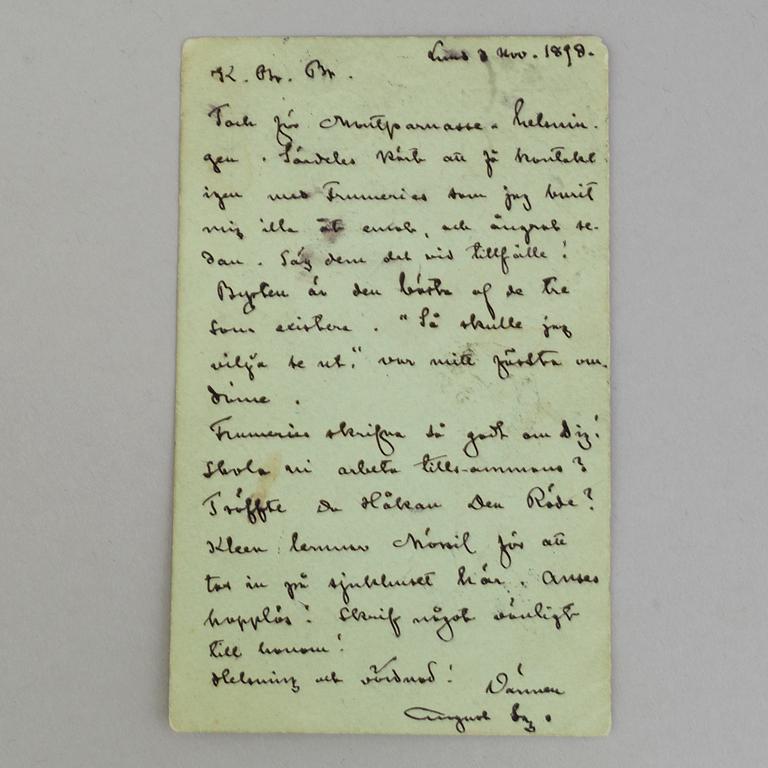 Lund 3 Nov. 1898.
K. Br. Br.
Tack för Montparnasse-helsnin-
gen. Särdeles kärt att få kontakt
igen med Frumeries som jag burit
mig illa åt emot, och ångrat se-
dan. Säg dem det vid tillfälle!
Bysten är den bästa af de tre
som existera. "Så skulle jag
vilja se ut," var mitt första om-
döme.
Frumeries skrifva så godt om Dig!
Skola vi arbeta tillsammans?
Träffte Du Håkan Den Röde?
Kleen lemnar Mörsil för att
tas in på sjukhuset här. Anses
hopplös! Skrif något vänligt
till honom!
Helsning och vördnad!
Vännen
August Sg.